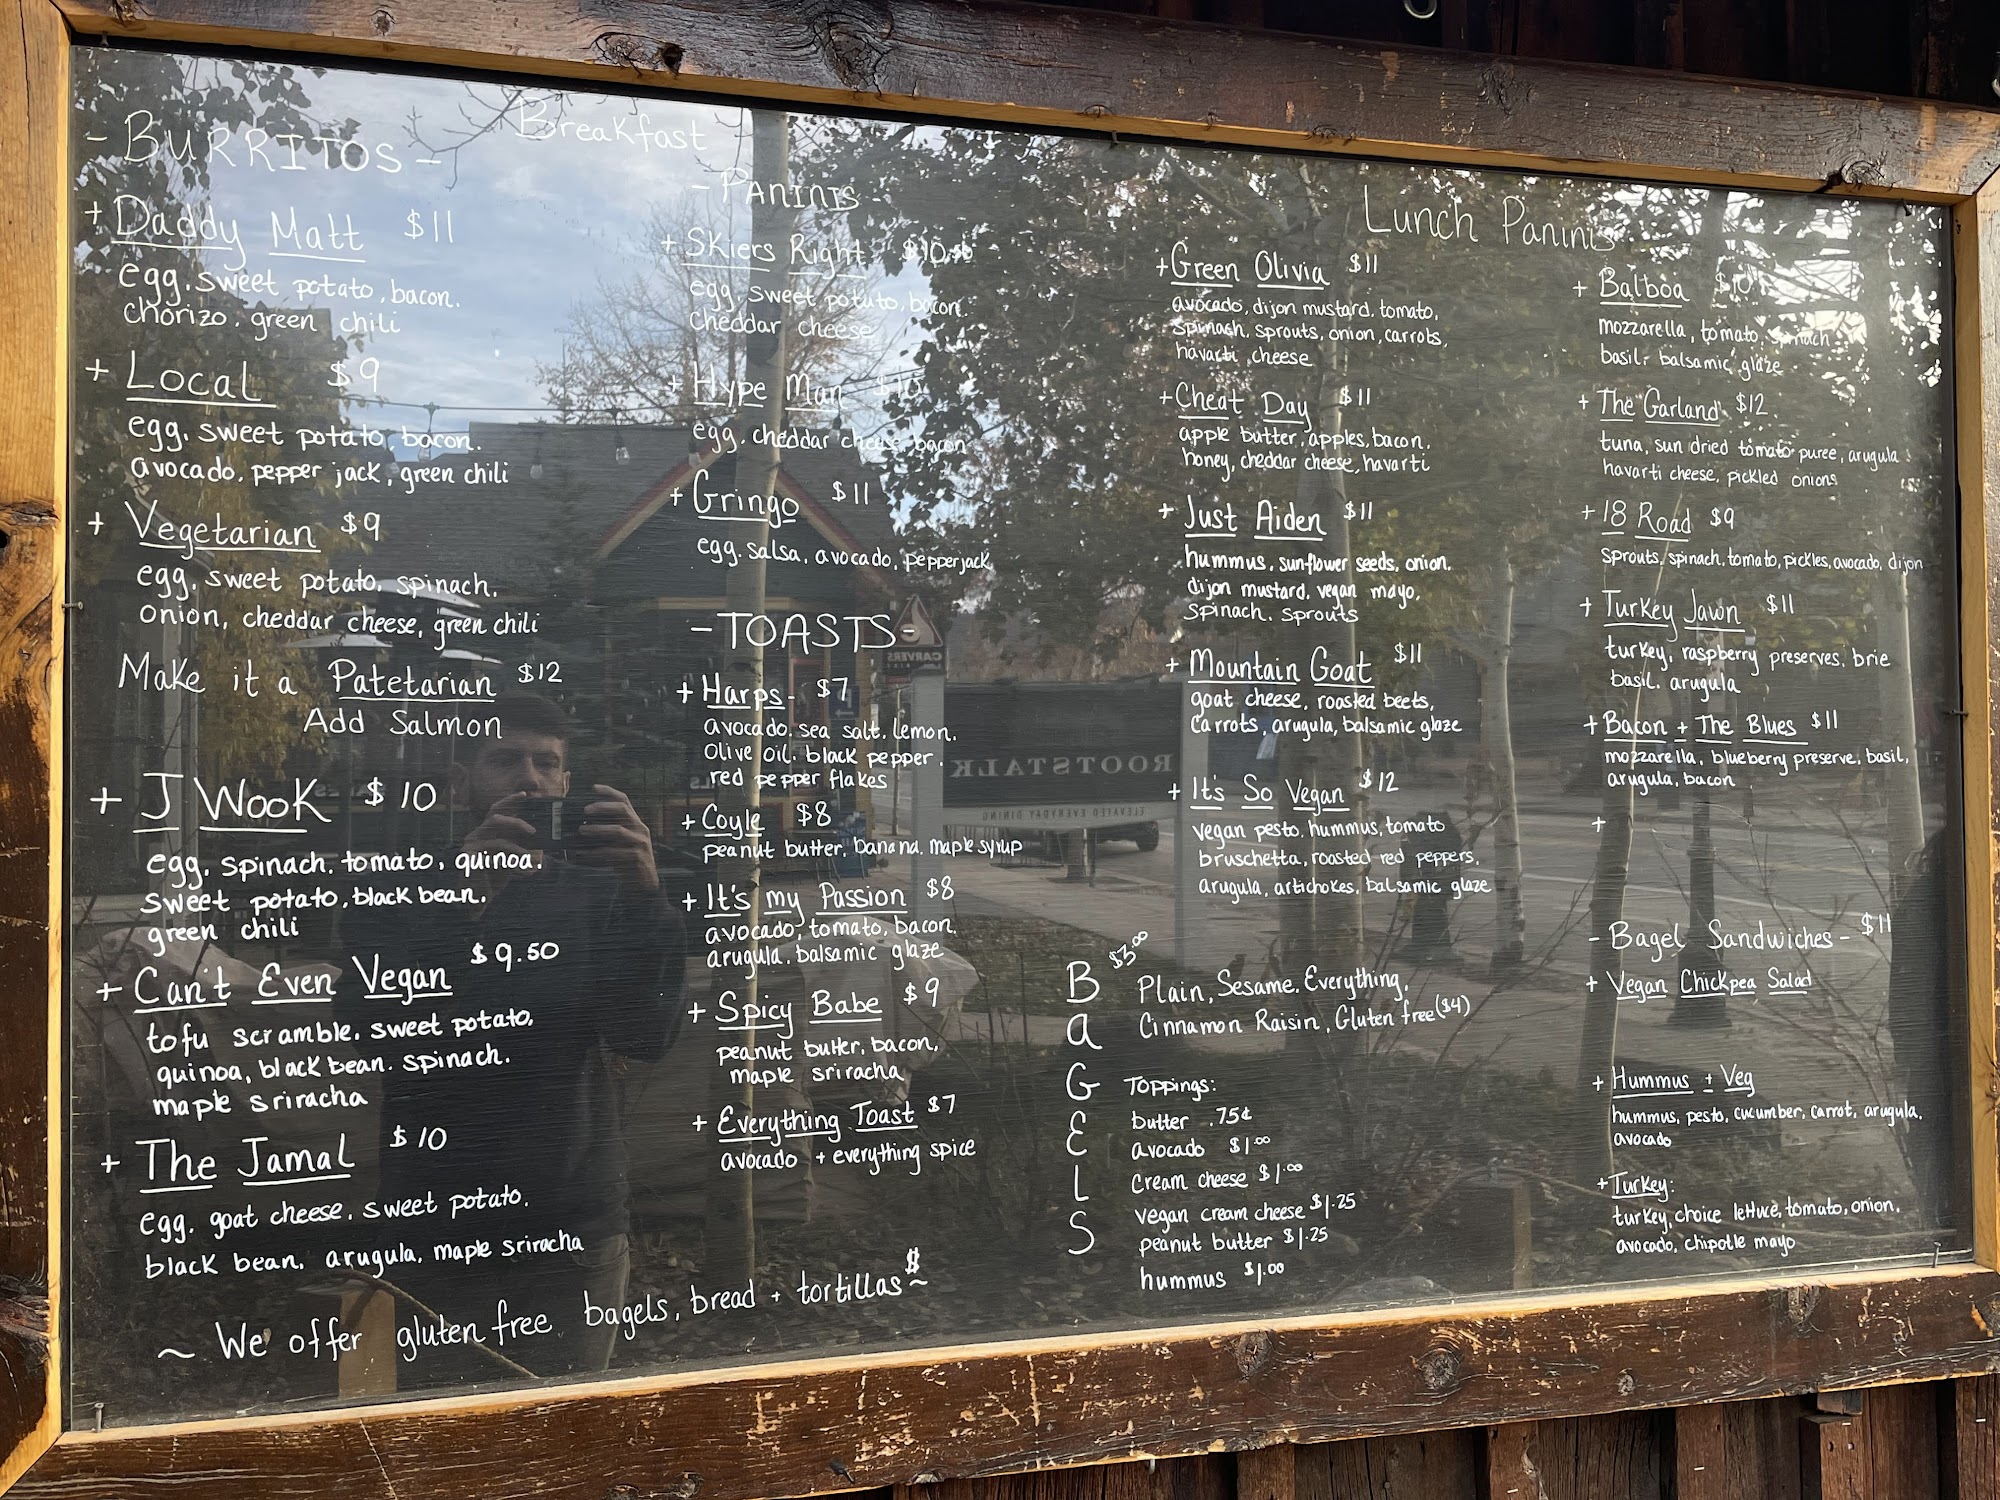 Breakfast
- BURRITOS -
+ Daddy Matt $11
egg. sweet potato, bacon.
chorizo. green chili
+ Local $9
egg. sweet potato, bacon.
avocado. pepper jack, green chili
+ Vegetarian $9
egg. sweet potato. spinach.
onion, cheddar cheese, green chili
Make it a Patetarian $12
Add Salmon
+ J Wook $10
egg. spinach. tomato, quinoa.
sweet potato, black bean.
green chili
+ Can't Even Vegan $9.50
tofu scramble. sweet potato,
quinoa, black bean. spinach.
maple sriracha
+ The Jamal $10
egg. goat cheese. sweet potato.
black bean. arugula, maple sriracha
~ We offer gluten free bagels, bread + tortillas ~
- PANINIS -
+ Skiers Right
egg. sweet potato, bacon.
cheddar cheese
+ Hype Man $10
egg. cheddar cheese, bacon
+ Gringo $11
egg. salsa, avocado, pepperjack
- TOASTS -
+ Harps - $7
avocado. sea salt. lemon.
olive oil. black pepper.
red pepper flakes
+ Coyle $8
peanut butter. banana. maple syrup
+ It's my Passion $8
avocado, tomato, bacon.
arugula. balsamic glaze
+ Spicy Babe $9
peanut butter. bacon,
maple sriracha
+ Everything Toast $7
avocado + everything spice
Lunch Paninis
+ Green Olivia $11
avocado, dijon mustard, tomato,
spinash, sprouts, onion, carrots,
havarti, cheese
+ Cheat Day $11
apple butter, apples, bacon,
honey, cheddar cheese, havarti
+ Just Aiden $11
hummus, sunflower seeds, onion.
dijon mustard. vegan mayo,
spinach. sprouts
+ Mountain Goat $11
goat cheese, roasted beets,
carrots, arugula, balsamic glaze
+ It's So Vegan $12
vegan pesto, hummus, tomato
bruschetta, roasted red peppers,
arugula, artichokes, balsamic glaze
+ Balboa $10
mozzarella, tomato, spinach
basil. balsamic glaze
+ The Garland $12
tuna, sun dried tomato puree, arugula
havarti cheese, pickled onions
+ 18 Road $9
sprouts, spinach, tomato, pickles, avocado, dijon
+ Turkey Jawn $11
turkey, raspberry preserves, brie
basil. arugula
+ Bacon + The Blues $11
mozzarella, blueberry preserve, basil,
arugula, bacon
+
BAGELS $3.00
Plain, Sesame, Everything,
Cinnamon Raisin, Gluten free ($4)
Toppings:
butter .75¢
avocado $1.00
cream cheese $1.00
vegan cream cheese $1.25
peanut butter $1.25
hummus $1.00
- Bagel Sandwiches - $11
+ Vegan Chickpea Salad
+ Hummus + Veg
hummus, pesto, cucumber, carrot, arugula,
avocado
+ Turkey:
turkey, choice lettuce, tomato, onion,
avocado, chipotle mayo
CARVERS
ROOTSTALK
ELEVATED EVERYDAY DINING